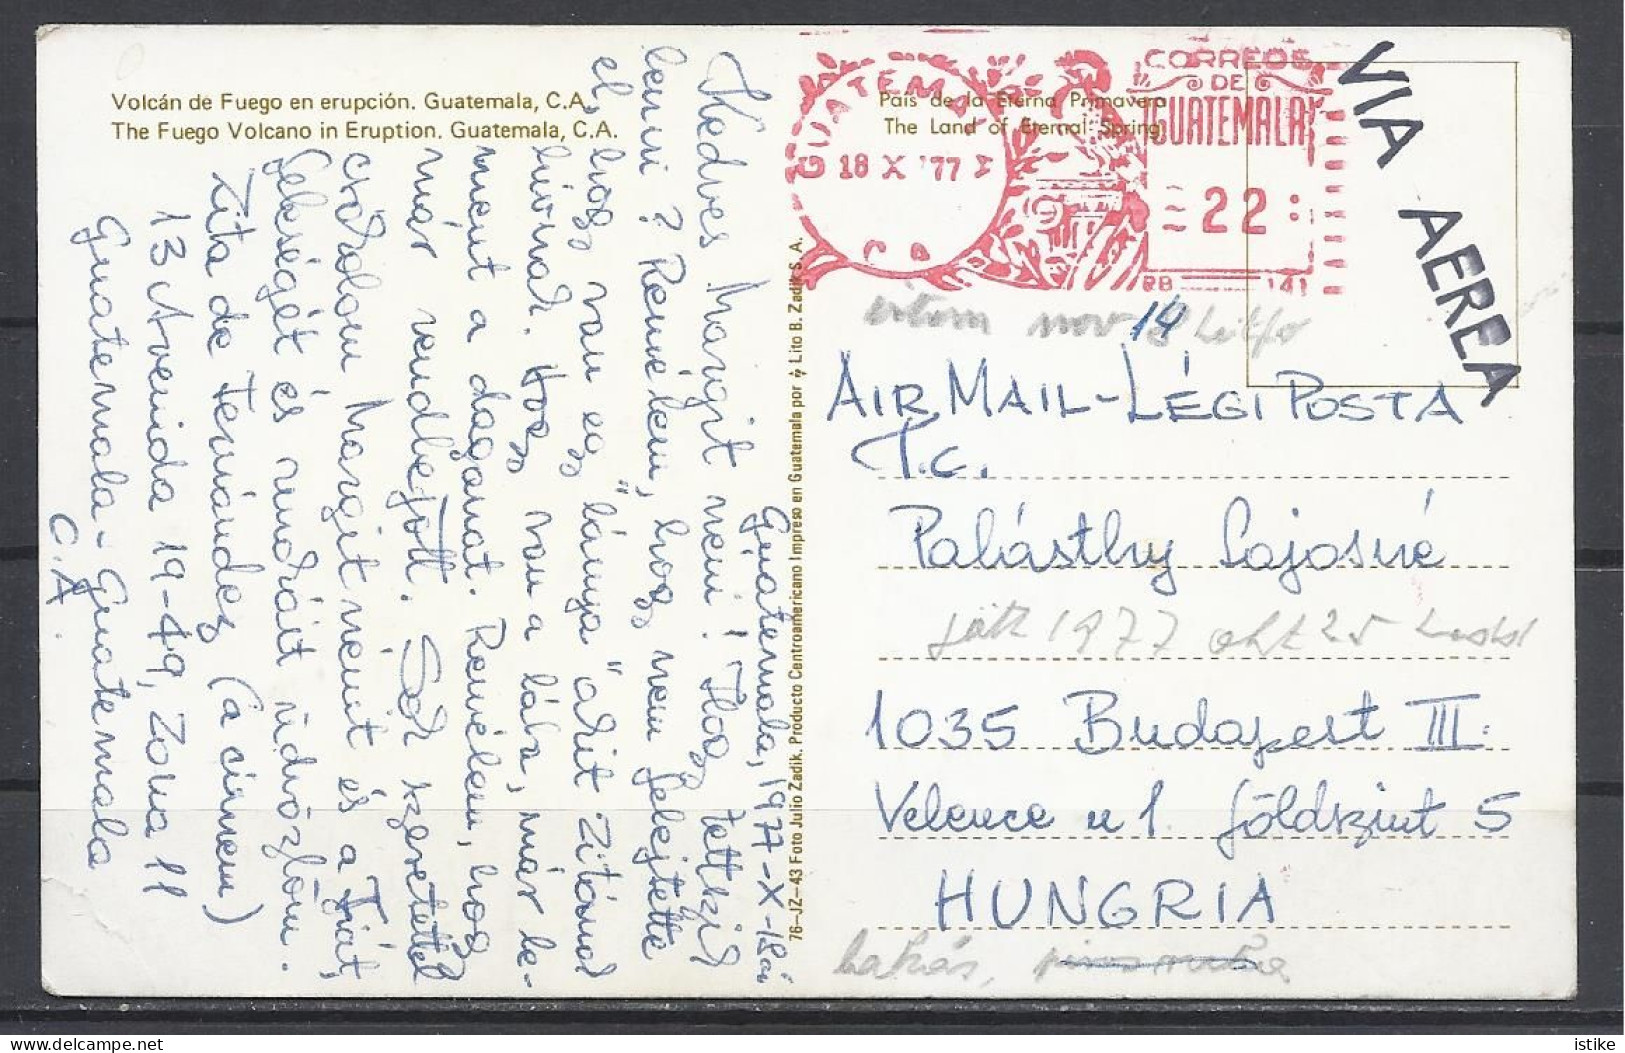 Volcán de Fuego en erupción. Guatemala, C.A.
The Fuego Volcano in Eruption. Guatemala, C.A.
País de la Eterna Primavera
The Land of Eternal Spring
GUATEMALA
18 X '77
C A
CORREOS
DE
GUATEMALA
22
RB 141
VIA AEREA
Guatemala, 1977-X-18án
Kedves Margit néni! Hogy tettszik
lenni? Remélem, hogy nem felejtette
el, hogy van egy "lánya" akit Zitának
hívnak. Hogy van a lába, már le-
ment a daganat. Remélem, hogy
már rendbejött. Sok szeretettel
csókolom Margit nénit és a
feleségét és unokáit üdvözlöm.
Zita de Fernández (a címem)
13 Avenida 19-49, Zona 11
Guatemala-Guatemala
C.A.
76–JZ–43 Foto Julio Zadik. Producto Centroamericano Impreso en Guatemala por Lito B. Zadik S. A.
nov 14
AIR MAIL-LÉGIPOSTA
T.c.
Palásthy Lajosné
1977 okt 25
1035 Budapest III.
Velence u 1. földszint 5
HUNGRIA
lakás,
istike